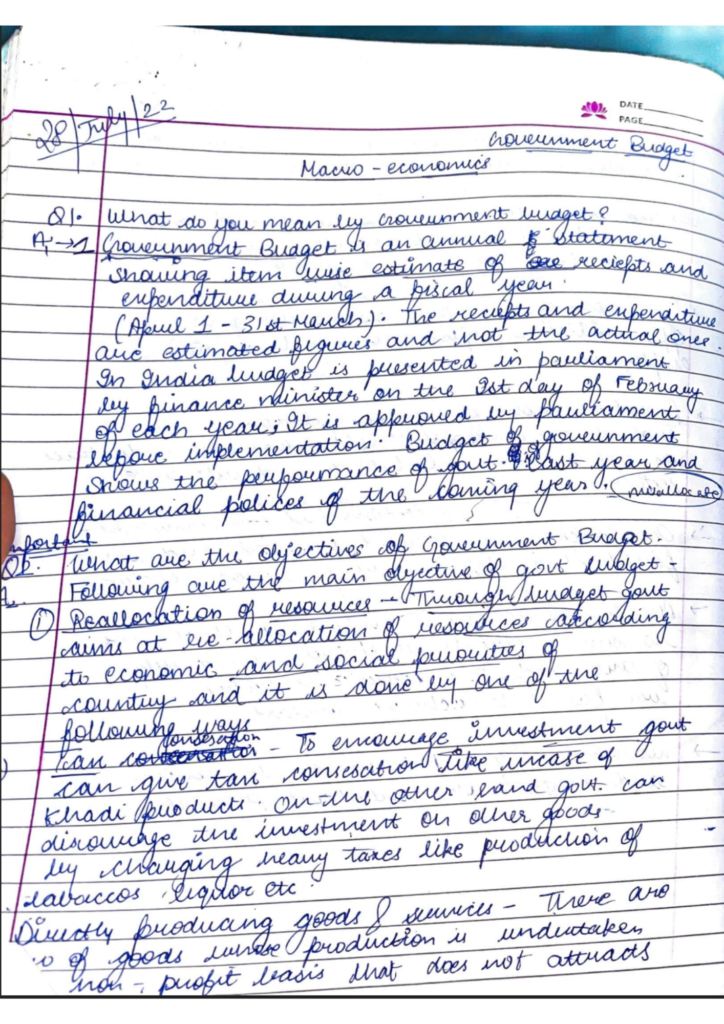 28/July/22
DATE
PAGE
Government Budget
Macro - economics
Q1. What do you mean by Government budget?
A,→1 Government Budget is an annual statement
showing item wise estimate of reciepts and
expenditure during a fiscal year.
(April 1 - 31st March). The reciepts and expenditure
are estimated figures and not the actual ones.
In India budget is presented in parliament
by finance minister on the 1st day of February
of each year; It is approved by parliament
before implementation. Budget of government
shows the performance of govt. last year and
financial polices of the coming year.
Important
Q2. What are the objectives of Government Budget.
Following are the main objective of govt budget -
① Reallocation of resources - Through budget govt
aims at re-allocation of resources according
to economic and social priorities of
country and it is done by one of the
following ways
Tax consesation - To encourage investment govt
can give tax consesation like incase of
Khadi products. On-the other hand govt. can
discourage the investment on other goods
by charging heavy taxes like production of
tabaccos, liquor etc.
Directly producing goods & services - There are
of goods whose production is undertaken
non - profit basis that does not attracts